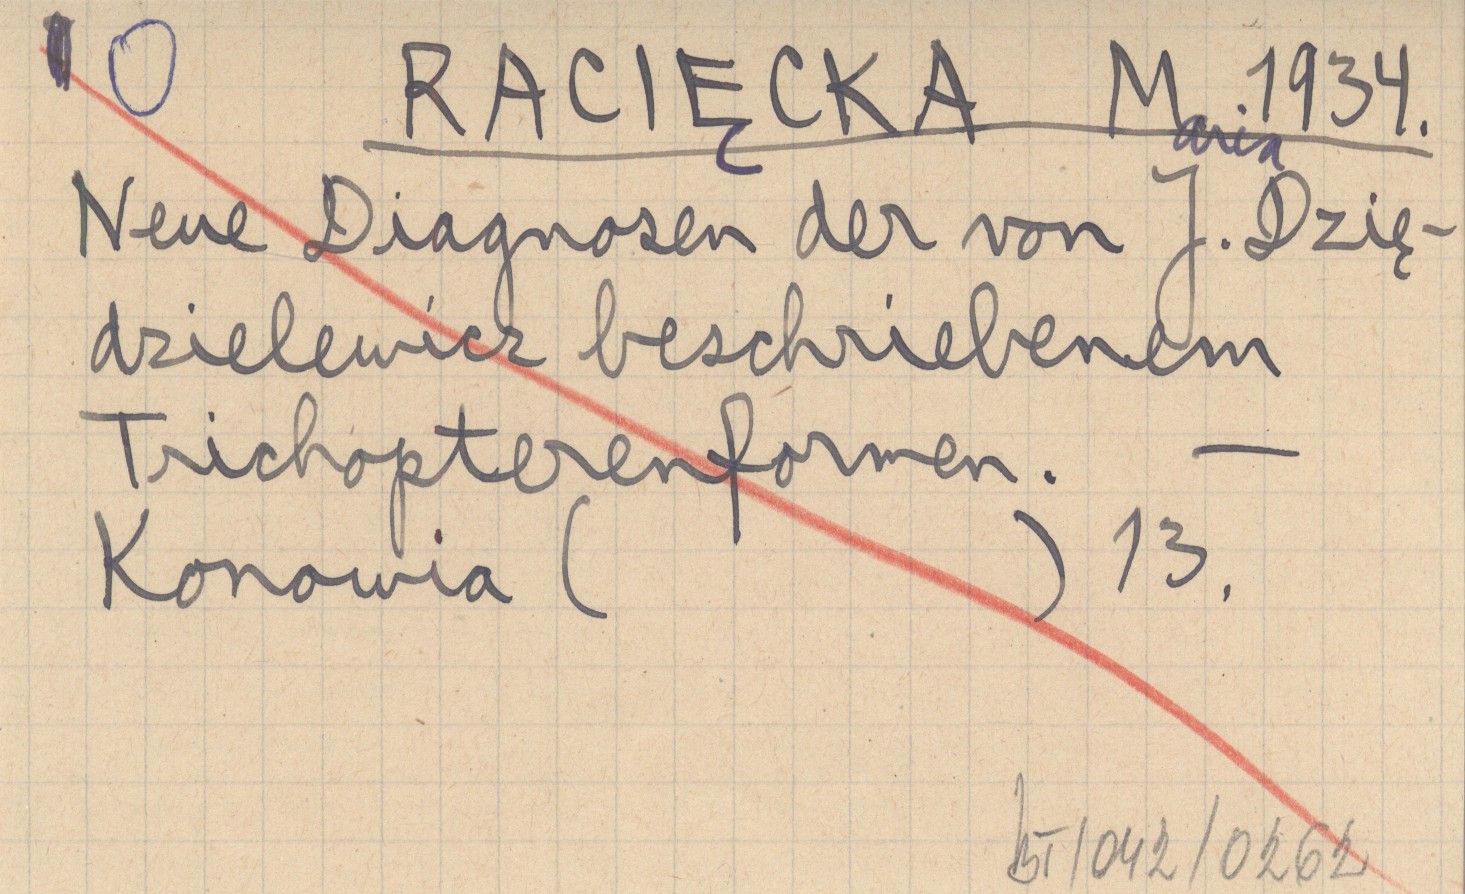 O RACIĘCKA Maria. 1934.
Neue Diagnosen der von J. Dzię-
dzielewicz beschriebenem
Trichopterenformen. —
Konowia ( ) 13.
/042/0262